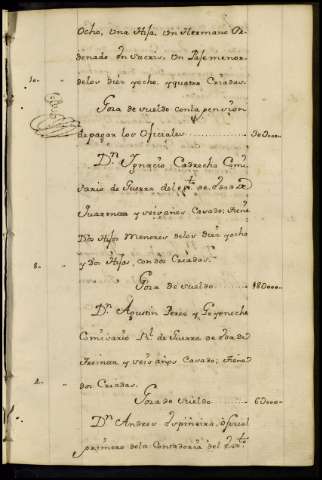 Ocho, una Hija un Hermano Or-
denado in Sacris, un Paje menor
10. delos diez yocho, y quatro Criadas.
Goza de sueldo con la pension
de pagar los oficiales ........
Dn. Ignacio Comi-
sario de Guerra del de edad de
Quarenta y seis años Casado; tiene
Dos Hijos Menores delos diez yocho
8. y dos Hijas, con dos Criadas.
Goza de sueldo ........ 18000
Dn. Agustin Perez y Goyeneche
Comisario Rl. de Guerra de edad de
Treinta y seis años Casado; tiene
4. dos Criadas.
Goza de sueldo ........ 6000
Dn. Andres Espineira, oficial
primero dela Contaduria del